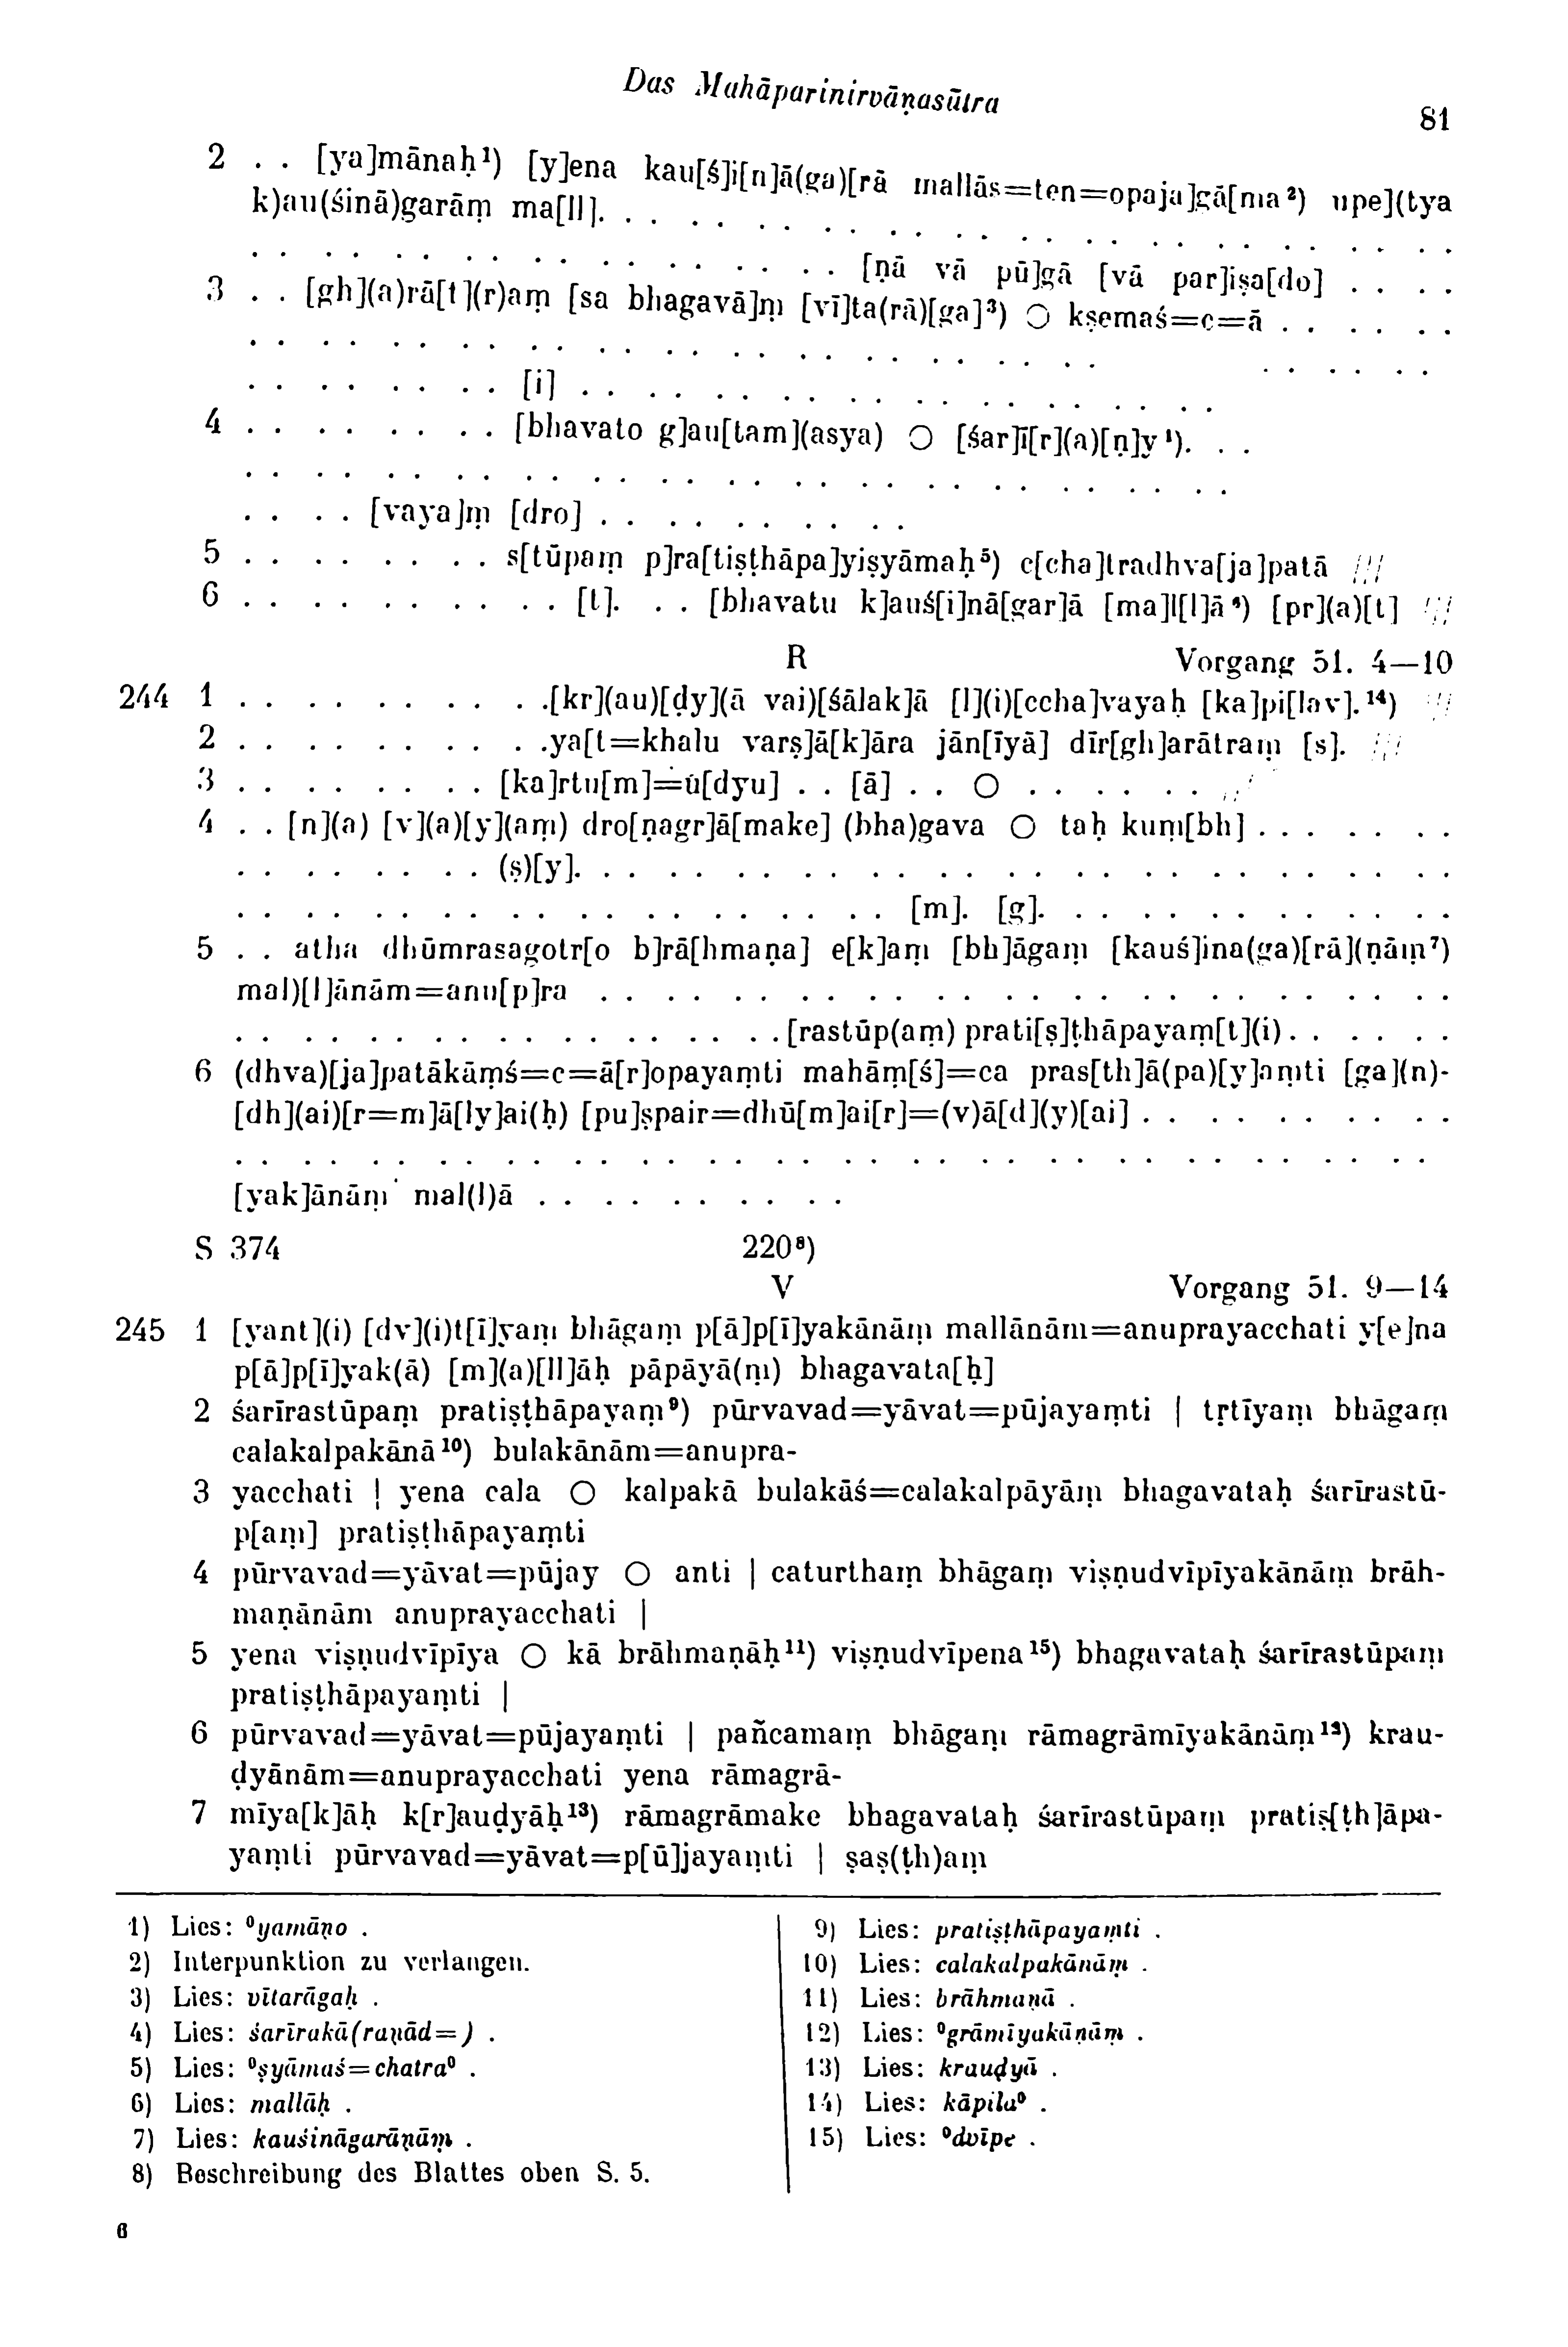 Das Mahāparinirvāṇasūtra
81
2 . . [ya]mānaḥ¹) [y]ena kau[ś]i[n]ā(ga)[rā mallās=ten=opaja]gā[ma²) upe](tya
k)au(śinā)garāṃ ma[ll]. . . . . . . . . . . . . . . . . . . . . . . . . .
. . . . . . . . . . . . . . . . . . [ṇā vā pū]gā [vā par]iṣa[do] . . . .
3 . . [gh](a)rā[t](r)aṃ [sa bhagavā]ṃ [vī]ta(rā)[ga]³) ○ kṣemaś=c=ā . . . . . .
. . . . . . . . . . . . . . . . . . . . . . . . . . . . . . . .
. . . . . . . . [i] . . . . . . . . . . . . . . . . . . .
4 . . . . . . . . [bhavato g]au[tam](asya) ○ [śar]ī[r](a)[ṇ]y⁴). . .
. . . . . . . . . . . . . . . . . . . . . . . . . . . . . .
. . . . [vaya]ṃ [dro] . . . . . . . . . .
5 . . . . . . . . s[tūpaṃ p]ra[tiṣṭhāpa]yiṣyāmaḥ⁵) c[cha]tradhva[ja]patā ///
6 . . . . . . . . . . [t]. . . [bhavatu k]auś[i]nā[gar]ā [ma]l[l]ā⁶) [pr](a)[t] ///
R Vorgang 51. 4—10
244 1 . . . . . . . . . .[kr](au)[ḍy](ā vai)[śālak]ā [l](i)[ccha]vayaḥ [ka]pi[lav].¹⁴) ///
2 . . . . . . . . . .ya[t=khalu varṣ]ā[k]āra jān[īyā] dīr[gh]arātraṃ [s]. ///
3 . . . . . . . . [ka]rtu[m]=u[dyu] . . [ā] . . ○ . . . . . . ///
4 . . [n](a) [v](a)[y](aṃ) dro[ṇagr]ā[make] (bha)gava ○ taḥ kuṃ[bh] . . . . . .
. . . . . . . . (ṣ)[y]. . . . . . . . . . . . . . . . . . . . . . . . . . .
. . . . . . . . . . . . . . . . . . . . [m]. [g]. . . . . . . . . . . . .
5 . . atha dhūmrasagotr[o b]rā[hmaṇa] e[k]aṃ [bh]āgaṃ [kauś]ina(ga)[rā](ṇāṃ⁷)
mal)[l]ānām=anu[p]ra . . . . . . . . . . . . . . . . . . . . . . . . . .
. . . . . . . . . . . . . . . . .[rastūp(aṃ) prati[ṣ]ṭhāpayaṃ[t](i). . . . . .
6 (dhva)[ja]patākāṃś=c=ā[r]opayaṃti mahāṃ[ś]=ca pras[th]ā(pa)[y]aṃti [ga](n)-
[dh](ai)[r=m]ā[ly]ai(ḥ) [pu]ṣpair=dhū[m]ai[r]=(v)ā[d](y)[ai] . . . . . . . . . .
. . . . . . . . . . . . . . . . . . . . . . . . . . . . . . . . . . . .
[yak]ānāṃ mal(l)ā . . . . . . . . . .
S 374 220⁸)
V Vorgang 51. 9—14
245 1 [yant](i) [dv](i)t[ī]yaṃ bhāgaṃ p[ā]p[ī]yakānāṃ mallānām=anuprayacchati y[e]na
p[ā]p[ī]yak(ā) [m](a)[ll]āḥ pāpāyā(ṃ) bhagavata[ḥ]
2 śarīrastūpaṃ pratiṣṭhāpayaṃ⁹) pūrvavad=yāvat=pūjayaṃti | tṛtīyaṃ bhāgaṃ
calakalpakānā¹⁰) bulakānām=anupra-
3 yacchati | yena cala ○ kalpakā bulakāś=calakalpāyāṃ bhagavataḥ śarīrastū-
p[aṃ] pratiṣṭhāpayaṃti
4 pūrvavad=yāvat=pūjay ○ anti | caturthaṃ bhāgaṃ viṣṇudvīpīyakānāṃ brāh-
maṇānām anuprayacchati |
5 yena viṣṇudvīpīya ○ kā brāhmaṇāḥ¹¹) viṣṇudvīpena¹⁵) bhagavataḥ śarīrastūpaṃ
pratiṣṭhāpayaṃti |
6 pūrvavad=yāvat=pūjayaṃti | pañcamaṃ bhāgaṃ rāmagrāmīyakānāṃ¹²) krau-
ḍyānām=anuprayacchati yena rāmagrā-
7 mīya[k]āḥ k[r]auḍyāḥ¹³) rāmagrāmake bhagavataḥ śarīrastūpaṃ pratiṣ[ṭh]āpa-
yaṃti pūrvavad=yāvat=p[ū]jayaṃti | ṣaṣ(ṭh)aṃ
1) Lies: ⁰yamāṇo .
2) Interpunktion zu verlangen.
3) Lies: vītarāgaḥ .
4) Lies: śarīrakā(raṇād=) .
5) Lies: ⁰ṣyāmaś=chatra⁰ .
6) Lies: mallāḥ .
7) Lies: kauśināgarāṇāṃ .
8) Beschreibung des Blattes oben S. 5.
9) Lies: pratiṣṭhāpayaṃti .
10) Lies: calakalpakānāṃ .
11) Lies: brāhmaṇā .
12) Lies: ⁰grāmīyakāṇāṃ .
13) Lies: krauḍyā .
14) Lies: kāpila⁰ .
15) Lies: ⁰dvīpe .
6